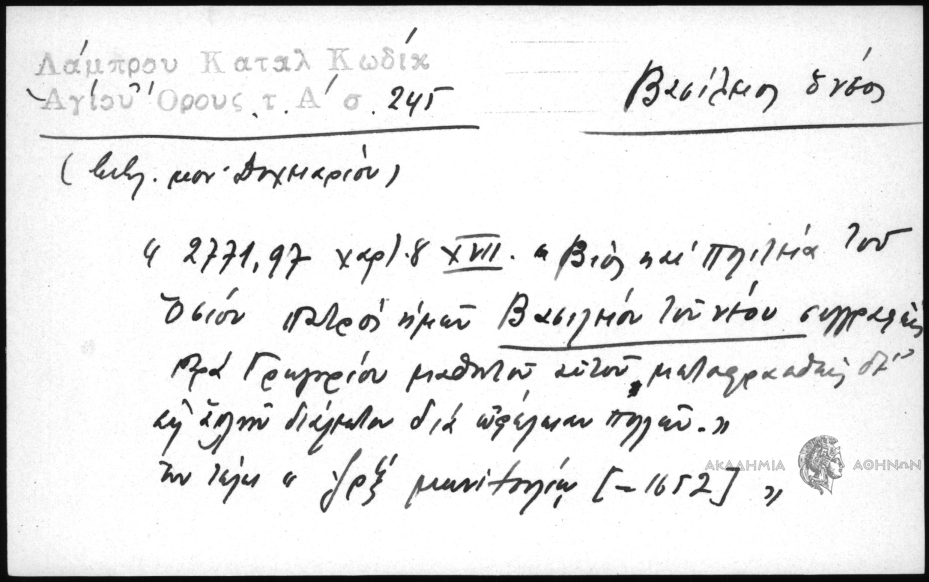 Λάμπρου Καταλ Κωδίκ
Ἁγίου Ὄρους τ. Α' σ. 245
Βασίλειος ὁ νέος
(βιβλ. μον. Δοχειαρίου)
" 2771,97 χαρτ. 8 XVII. " Βίος καὶ πολιτεία τοῦ
ὁσίου πατρὸς ἡμῶν Βασιλείου τοῦ νέου συγγραφεὶς
παρὰ Γρηγορίου μαθητοῦ αὐτοῦ, μεταφρασθεὶς δὲ
εἰς ἁπλῆν διάλεκτον διὰ ὠφέλειαν πολλῶν."
ἐν τέλει " ͵ζρξ [– 1652] "
ΑΚΑΔΗΜΙΑ ΑΘΗΝΩΝ